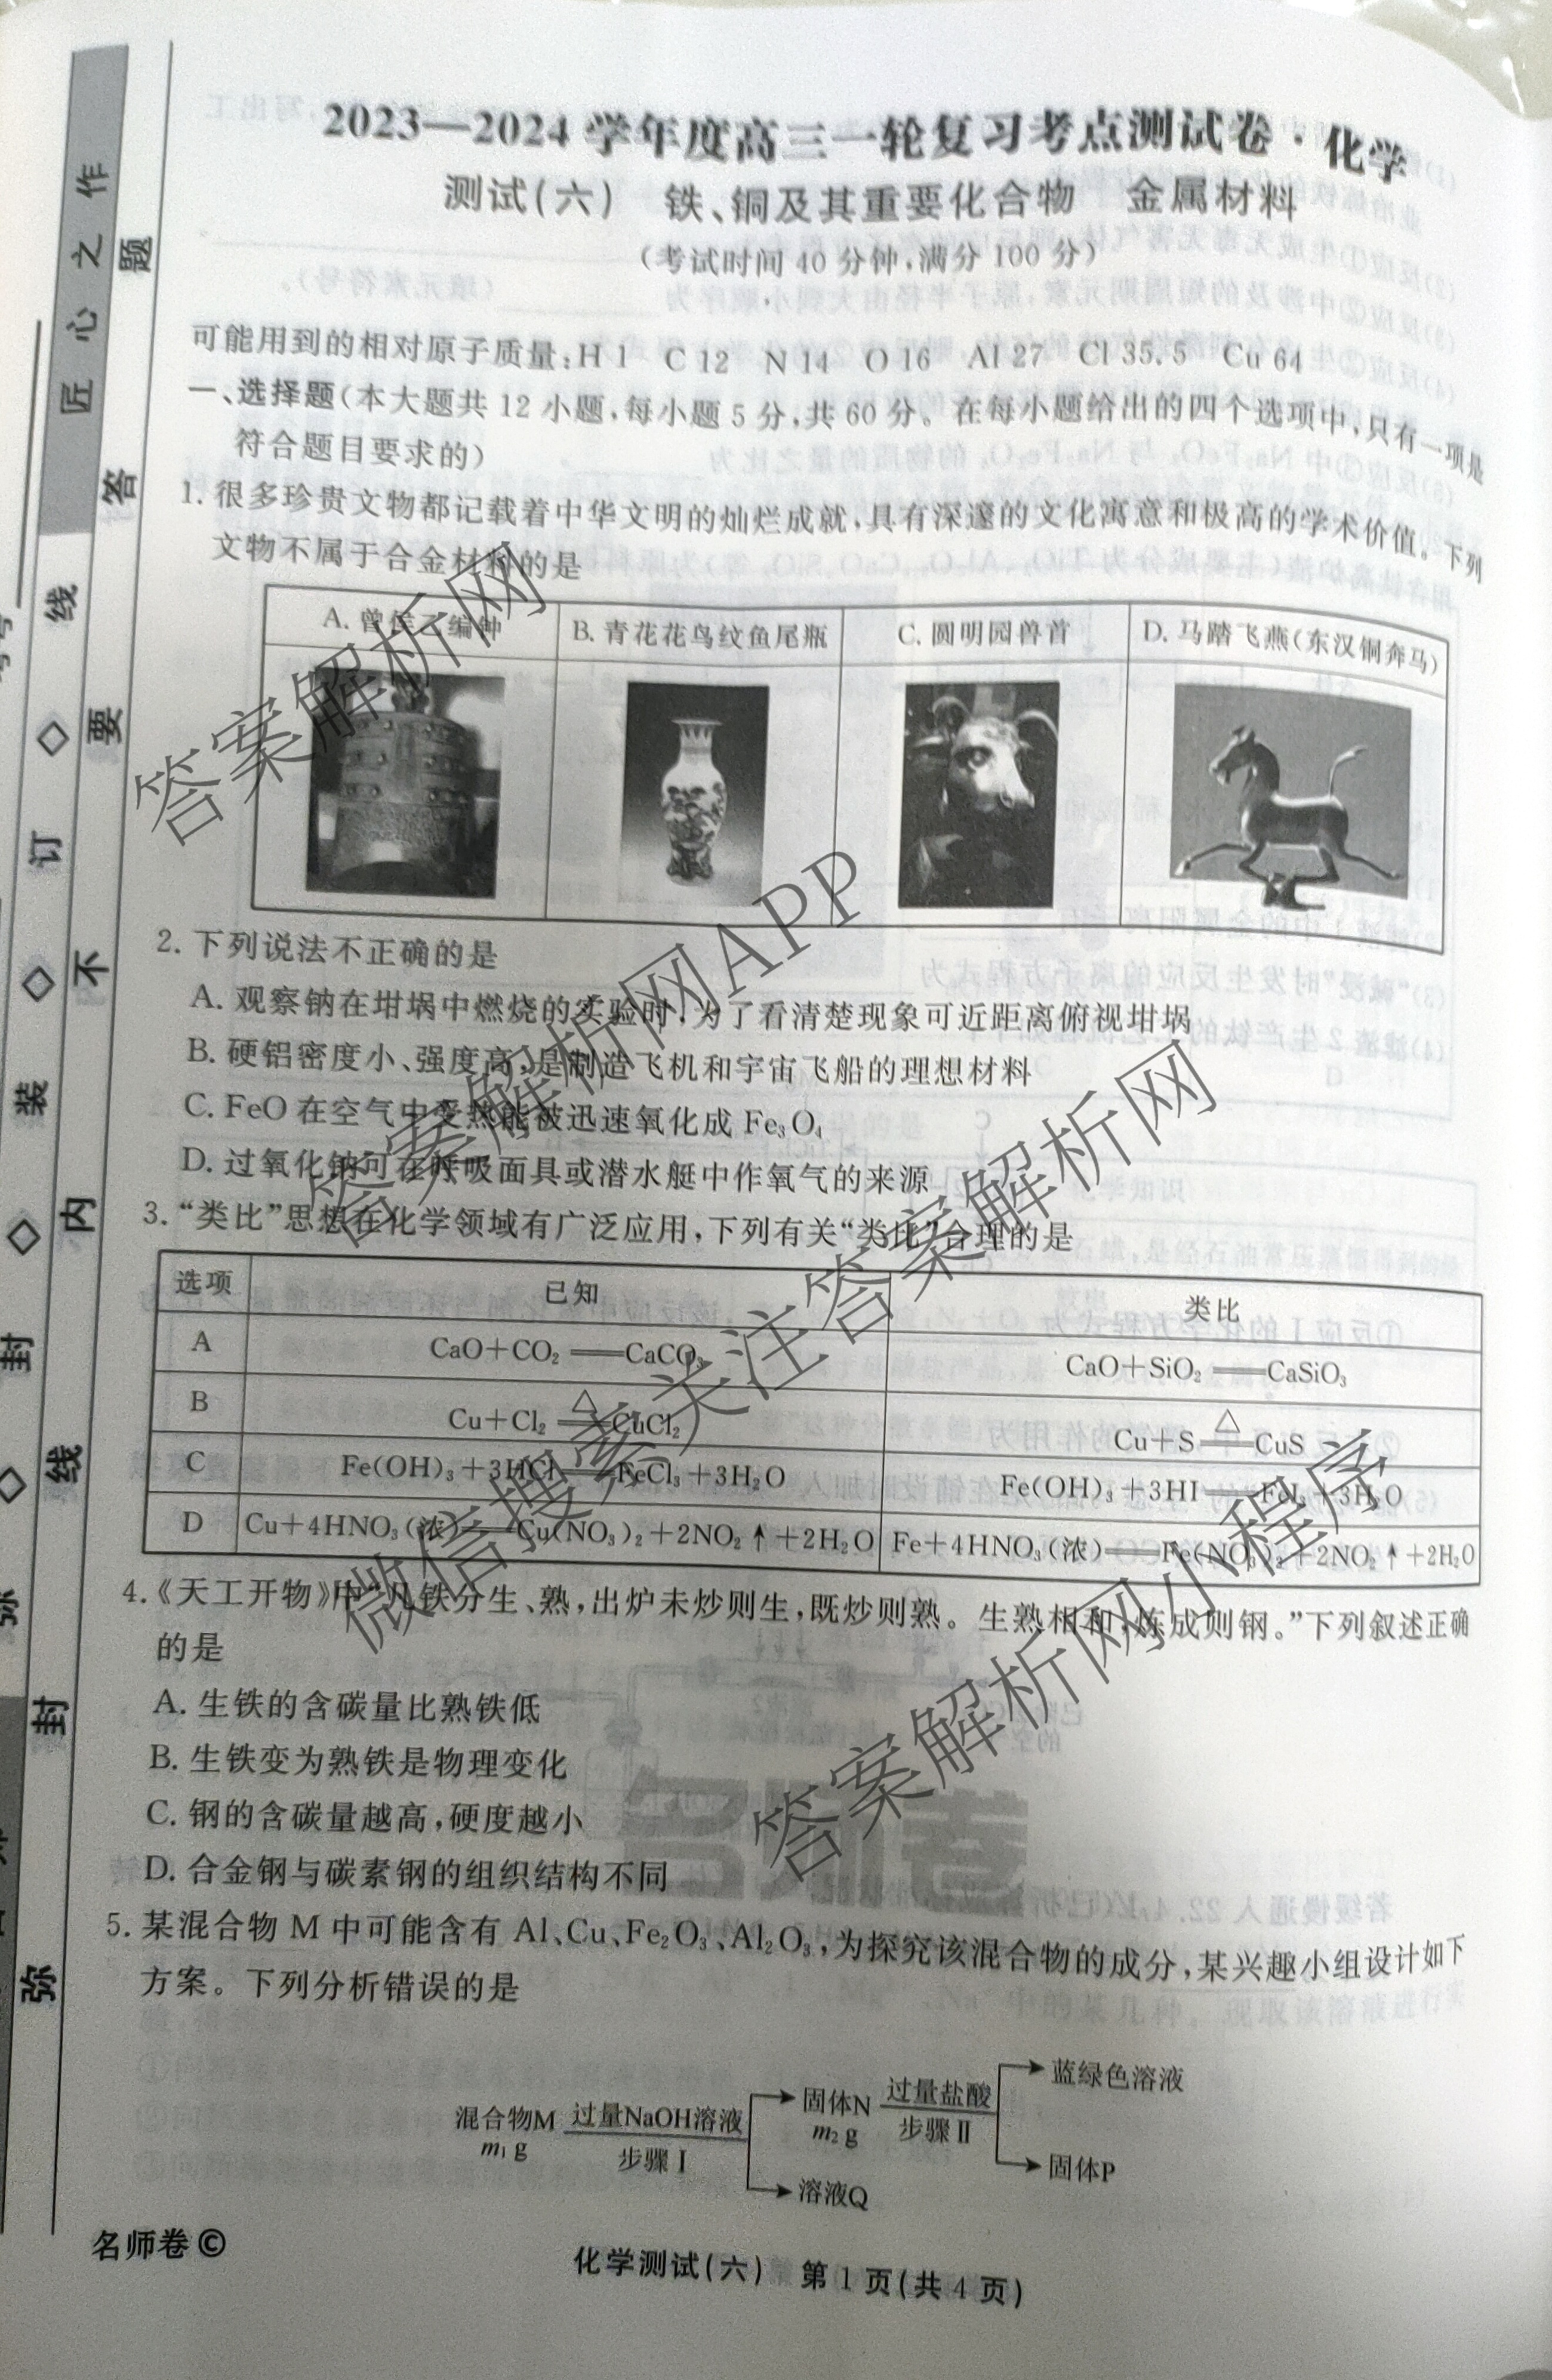 2023—2024学年度高三一轮复习考点测试卷·化学
测试(六) 铁、铜及其重要化合物 金属材料
(考试时间40分钟,满分100分)
可能用到的相对原子质量:H 1 C 12 N 14 O 16 Al 27 Cl 35.5 Cu 64
一、选择题(本大题共12小题,每小题5分,共60分。在每小题给出的四个选项中,只有一项是
符合题目要求的)
1.很多珍贵文物都记载着中华文明的灿烂成就,具有深邃的文化寓意和极高的学术价值。下列
文物不属于合金材料的是
A.曾侯乙编钟 B.青花花鸟纹鱼尾瓶 C.圆明园兽首 D.马踏飞燕(东汉铜奔马)
2.下列说法不正确的是
A.观察钠在坩埚中燃烧的实验时,为了看清楚现象可近距离俯视坩埚
B.硬铝密度小、强度高,是制造飞机和宇宙飞船的理想材料
C.FeO在空气中受热能被迅速氧化成Fe₃O₄
D.过氧化钠可在呼吸面具或潜水艇中作氧气的来源
3.“类比”思想在化学领域有广泛应用,下列有关“类比”合理的是
选项 已知 类比
A CaO+CO₂══CaCO₃ CaO+SiO₂══CaSiO₃
B Cu+Cl₂══△CuCl₂ Cu+S══△CuS
C Fe(OH)₃+3HCl══FeCl₃+3H₂O Fe(OH)₃+3HI══FeI₃+3H₂O
D Cu+4HNO₃(浓)══Cu(NO₃)₂+2NO₂↑+2H₂O Fe+4HNO₃(浓)══Fe(NO₃)₂+2NO₂↑+2H₂O
4.《天工开物》中“凡铁分生、熟,出炉未炒则生,既炒则熟。生熟相和,炼成则钢。”下列叙述正确
的是
A.生铁的含碳量比熟铁低
B.生铁变为熟铁是物理变化
C.钢的含碳量越高,硬度越小
D.合金钢与碳素钢的组织结构不同
5.某混合物M中可能含有Al、Cu、Fe₂O₃、Al₂O₃,为探究该混合物的成分,某兴趣小组设计如下
方案。下列分析错误的是
混合物M
m₁ g
过量NaOH溶液
步骤Ⅰ
固体N
m₂ g
溶液Q
过量盐酸
步骤Ⅱ
蓝绿色溶液
固体P
名师卷©
化学测试(六) 第1页(共4页)
匠心之作
弥 封 线 内 不 要 答 题
封 ◇ 装 ◇ 订 ◇ 线
答案解析网
答案解析网APP
微信搜索关注答案解析网
答案解析网小程序